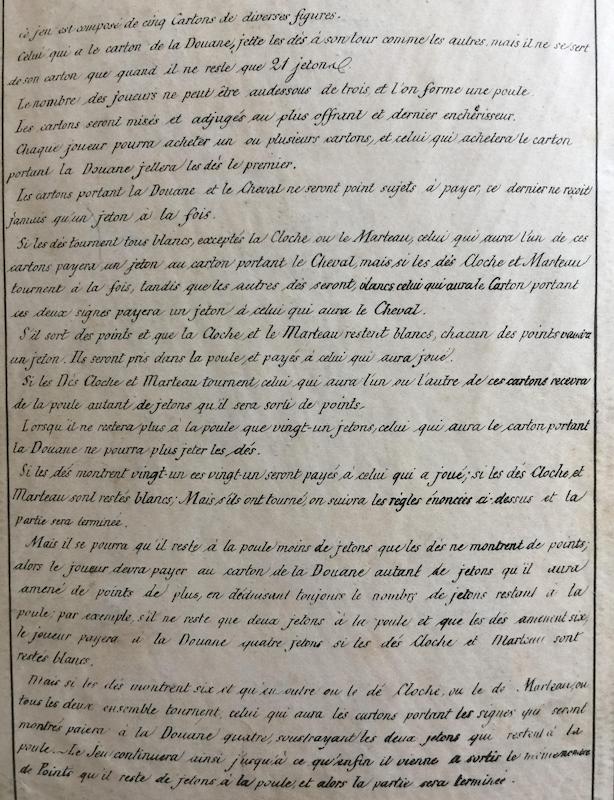 ce jeu est composé de cinq Cartons de diverses figures.
Celui qui a le carton de la Douane, jette les dés à son tour comme les autres, mais il ne se sert
de son carton que quand il ne reste que 21 jetons
Le nombre des joueurs ne peut être audessous de trois et l'on forme une poule.
Les cartons seront misés et adjugés au plus offrant et dernier enchérisseur.
Chaque joueur pourra acheter un ou plusieurs cartons, et celui qui achetera le carton
portant la Douane jettera les dés le premier.
Les cartons portant la Douane et le Cheval ne seront point sujets à payer, ce dernier ne reçoit
jamais qu'un jeton à la fois.
Si les dés tournent tous blancs, exceptés la Cloche ou le Marteau, celui qui aura l'un de ces
cartons payera un jeton au carton portant le Cheval, mais si les dés Cloche et Marteau
tournent à la fois, tandis que les autres dés seront, blancs celui qui aura le Carton portant
ces deux signes payera un jeton à celui qui aura le Cheval.
S'il sort des points et que la Cloche et le Marteau restent blancs, chacun des points vaudra
un jeton. Ils seront pris dans la poule, et payés à celui qui aura joué.
Si les Dés Cloche et Marteau tournent, celui qui aura l'un ou l'autre de ces cartons recevra
de la poule autant de jetons qu'il sera sorti de points.
Lorsqu'il ne restera plus à la poule que vingt-un jetons, celui qui aura le carton portant
la Douane ne pourra plus jeter les dés.
Si les dés montrent vingt-un ces vingt-un seront payés à celui qui a joué; si les dés Cloche et
Marteau sont restés blancs; Mais s'ils ont tourné, on suivra les règles énoncées ci-dessus et la
partie sera terminée.
Mais il se pourra qu'il reste à la poule moins de jetons que les dés ne montrent de points;
alors le joueur devra payer au carton de la Douane autant de jetons qu'il aura
amené de points de plus, en déduisant toujours le nombre de jetons restant à la
poule; par exemple, s'il ne reste que deux jetons à la poule et que les dés amenent six,
le joueur payera à la Douane quatre jetons si les dés Cloche et Marteau sont
restés blancs.
Mais si les dés montrent six et qu'en outre ou le dé Cloche, ou le dé Marteau, ou
tous les deux ensemble tournent, celui qui aura les cartons portant les signes qui seront
montrés paiera à la Douane quatre, soustrayant les deux jetons qui restent à la
poule. Le Jeu continuera ainsi jusqu'à ce qu'enfin il vienne à sortir le même nombre
de Points qu'il reste de jetons à la poule, et alors la partie sera terminée.